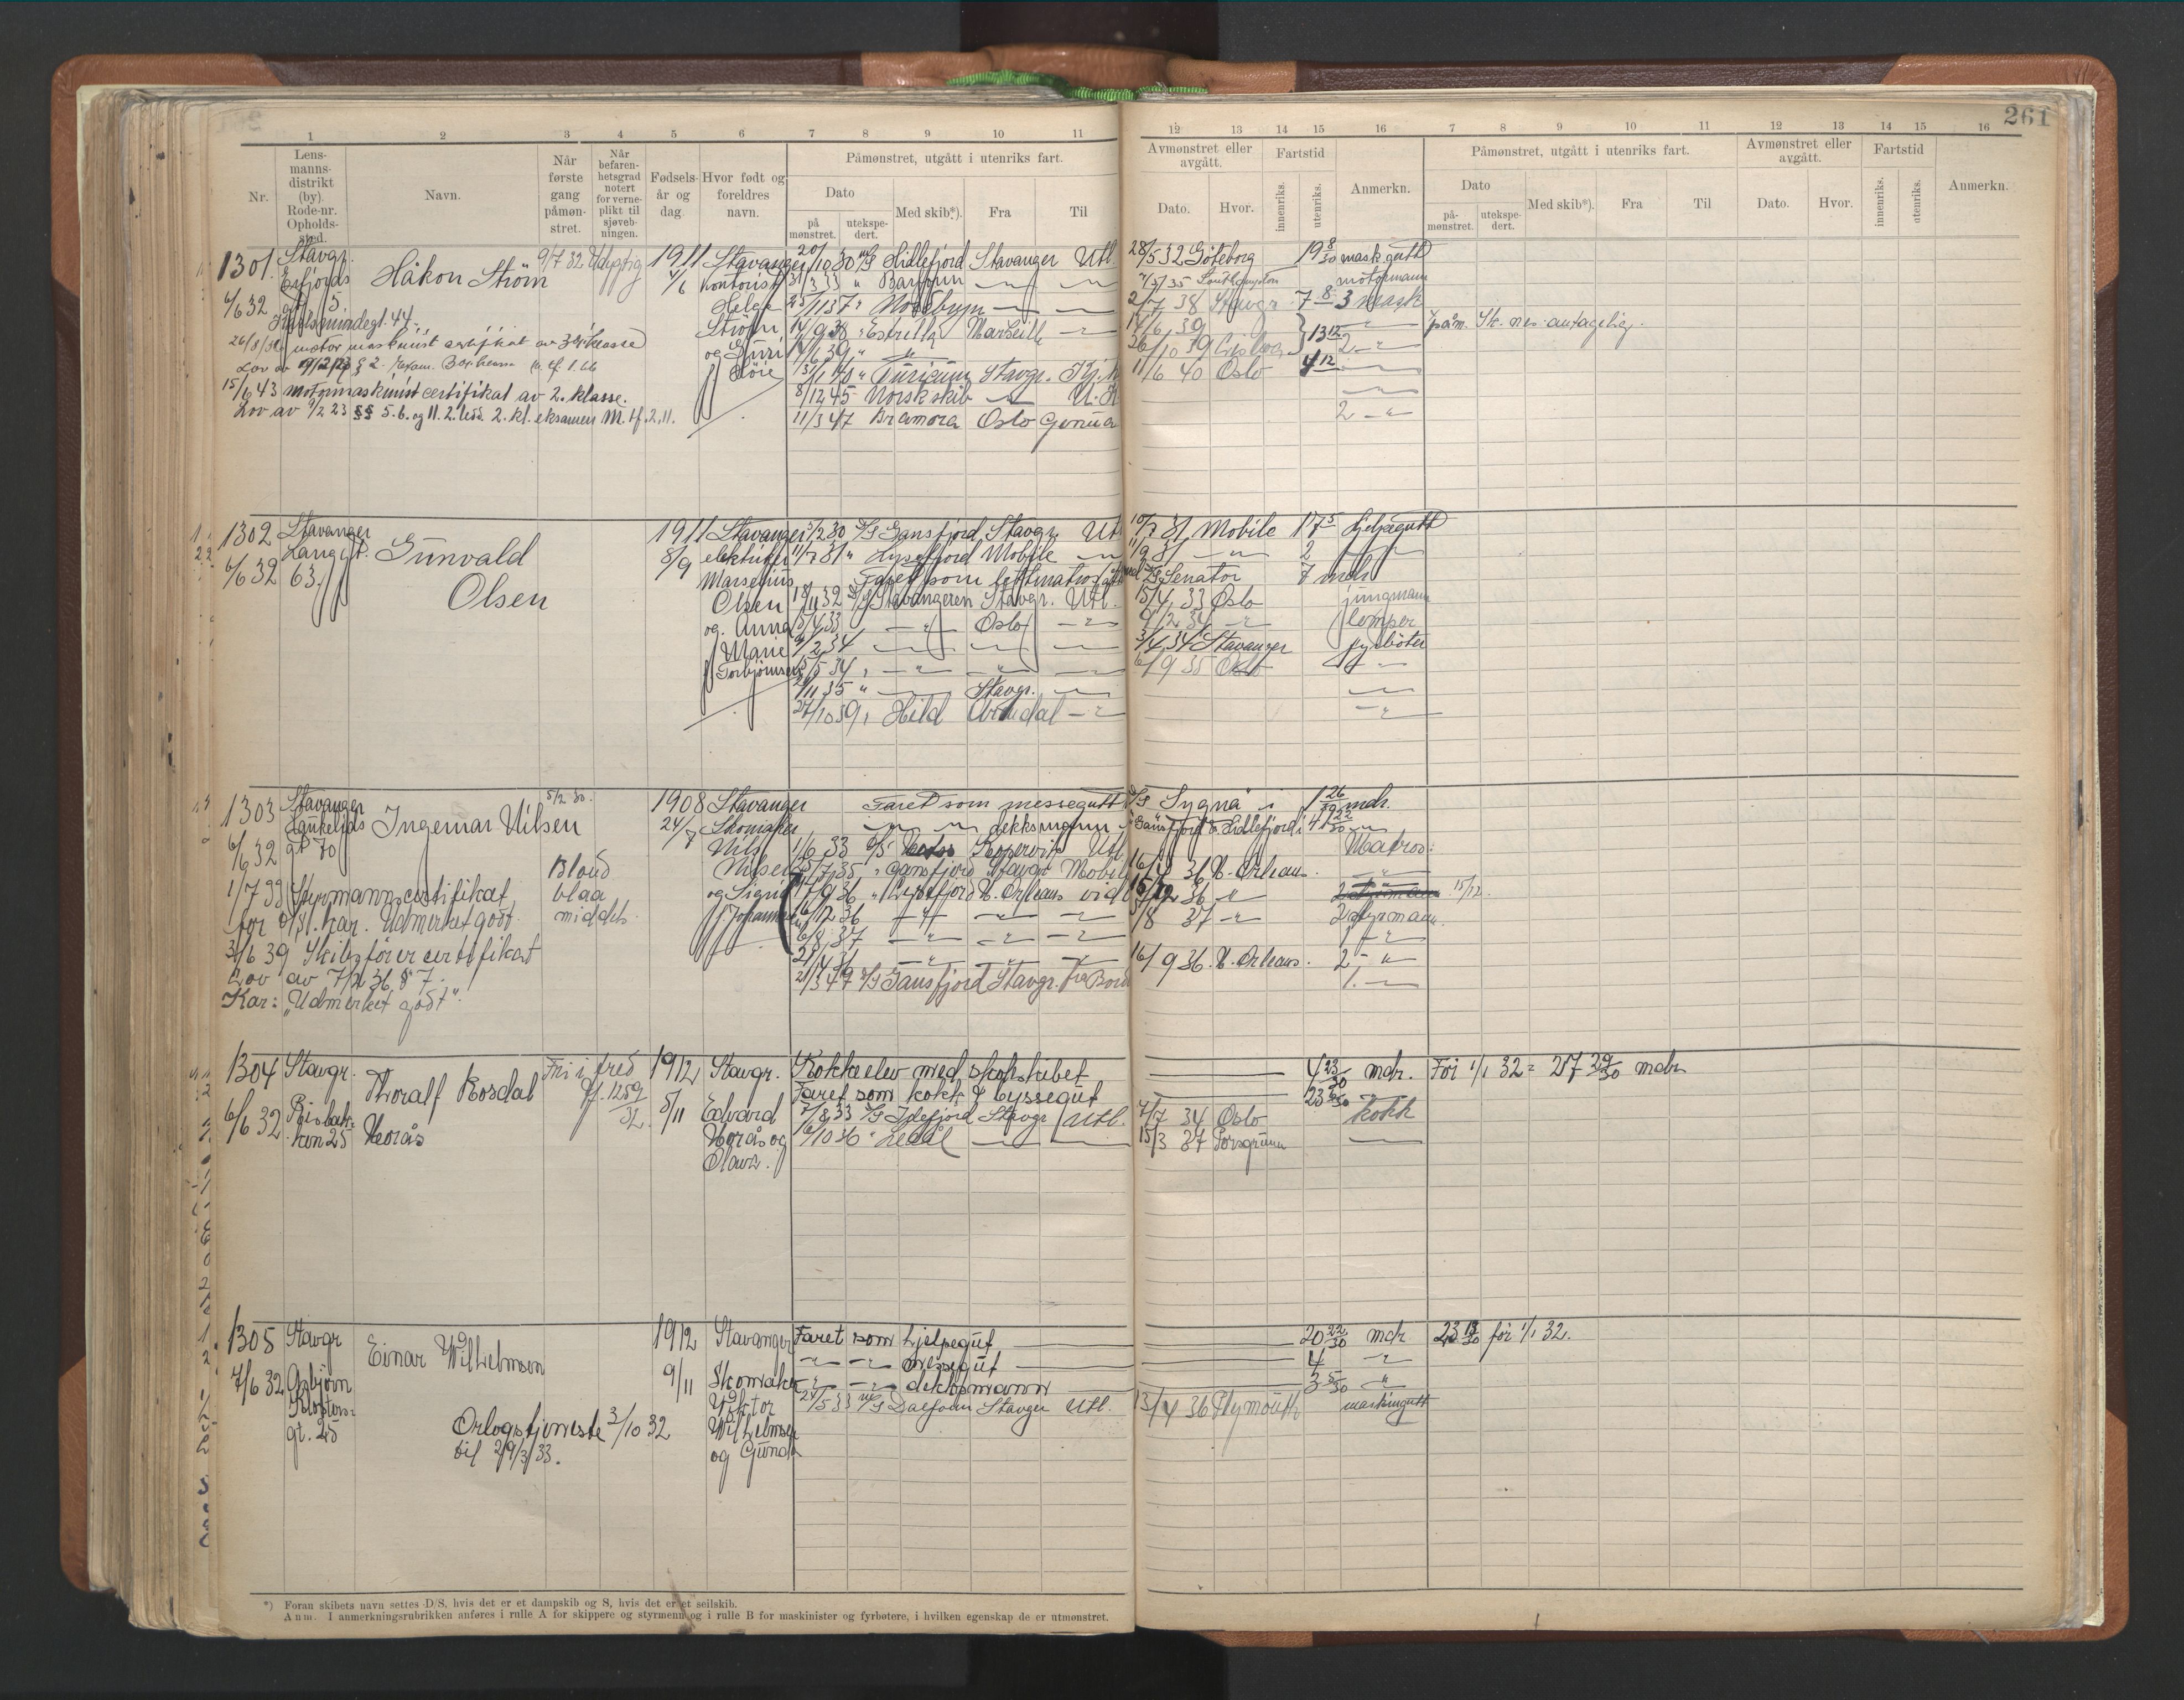 261
1 2 3 4 5 6 7 8 9 10 11 12 13 14 15 16 7 8 9 10 11 12 13 14 15 16
Nr.
Lens-
manns-
distrikt
(by).
Rode-nr.
Opholds-
sted.
Navn.
Når
første
gang
påmøn-
stret.
Når
befaren-
hetsgrad
notert
for verne-
plikt til
sjøveb-
ningen.
Fødsels-
år og
dag.
Hvor født og
foreldres
navn.
Påmønstret, utgått i utenriks fart.
Dato
på
mønstret.
utekspe-
dert.
Med skib*).
Fra
Til
Avmønstret eller
avgått.
Dato.
Hvor.
Fartstid
innenriks.
utenriks.
Anmerkn.
Påmønstret, utgått i utenriks fart.
Dato
på-
mønstret.
utekspe-
dert.
Med skib*).
Fra
Til
Avmønstret eller
avgått.
Dato.
Hvor.
Fartstid
innenriks.
utenriks.
Anmerkn.
1301 Stavgr. Håkon Ström 9/7 32 1911 Stavanger 20/10 30 M/S Lidlefjord Stavanger Utl. 28/5 32 Göteborg 19 8/30 mask.gutt
Erfjords 4/6 Kontorist 31/3 33 " — — 4/5 35 Southampton motormann
6/6 32 gt 5 Helge 25/11 37 " — — 2/7 38 Stavgr 7 8 3 mask
gt. 44. Ström 14/9 38 " Estrella Marseille — 14/6 39 13 12 — påm. Sk. nes. antagelig.
26/8/36 motor maskinist certifikat av 3dje klasse og Guri 14/6 39 " — " — 26/10 39 2 — "
Lov av 9/2/23 § 2. 13/1 40 " Turicum Stavgr. 11/6 40 Oslo 4 12 —
15/6 43 Motormaskinist certifikat av 2. klasse. 8/12 45 Norsk skib — U.K. —
Lov av 9/2 23 §§ 5. 6. og 11. 2. ledd. 2. kl. eksamen M. tf. 2. 11. 11/3 47 Bramora Oslo Genua 2 — "
1302 Stavanger Gunvald 1911 Stavanger 5/2 30 D/S Gansfjord Stavgr. Utl 10/7 31 Mobile 17 5 hjelpegutt
Langgt. Olsen 8/9 elektriker 11/7 31 " Lysefjord Mobile — " 11/9 31 — " — 2 —
6/6 32 63. Marselius Faret som lettmatros Senator 7 mdr
Olsen 18/11 32 D/S Stavangeren Stavgr. Utl. 15/4 33 Oslo jungmann
og Anna 15/4 33 — " — Oslo — " 9/2 34 — " lemper
Marie 9/2 34 — — — 3/4 34 Stavanger fyrböter
Torbjörnsen 15/5 34 " — " — " — 6/9 35 Oslo — " —
21/11 35 " — Stavgr. — —
27/10 39 " Hild Arendal — " — "
1303 Stavanger Ingemar Nilsen 5/2 30. 1908 Stavanger Faret som messegutt D/S "Sygna" i 1 26/30 mdr.
Haukelids 24/7 Skomaker — " — " dekksmann " Gansfjord & Lidlefjord i 41 22/30 — "
6/6 32 gt 30 Nils 1/6 33 D/S Kopervik Utl Matros.
Blond Nilsen 25/7 35 " Gansfjord Stavgr Mobile 16/9 36 N. Orleans. —
1/7 33 Styrmannscertifikat blaa og Sigrid 17/9 36 " Lysefjord N. Orleans vid 15/12 36 — " 15/12.
for 9/31. Kar. Udmerket godt. middels 16/12 36 — " — — — /8 37 — " 2 styrmann
6/8 37 — " — " — " 1 — "
3/6 39 Skibsförer certifikat — " — " — " 16/9 36. N. Orleans. 2 — "
Lov av 7/2 36, § 7. 21/3 47 D/S Gansfjord Stavgr. 1. —
Kar: "Udmerket godt".
1304 Stavgr. Thoralf Rosdal Fri i fred 1912 Stavgr. Kokkeelev med skolskibet — 4 23/30 mdr. För 1/1 32 = 27 29/30 mdr
Risbak- Horås Pf. 1259/32 5/11 Edvard Faret som kokk & byssegut 23 6/30
6/6 32 ken 25 Horås og 7/8 33 D/S Idefjord Stavgr Utl. 7/7 34 Oslo kokk
Olava. 6/10 36 " Ledal — — 15/3 37 Porsgrunn —
1305 Stavgr Einar Wilhelmsen 1912 Stavanger Faret som hjelpegut — 20 22/30 mdr 23 13/30 för 1/1 32.
7/6 32 Asbjörn 9/11 Skomaker — " — " messegut — 4 — "
Klosters- Viktor — " — " dekksmann — 3 5/30 "
gt. 25 Wilhelmsen 24/5 33 M/S Dalfonn Stavgr Utl. 13/4 36 Plymouth maskingutt
Orlogstjeneste 3/10 32 og Gunda
til 29/3 33.
*) Foran skibets navn settes D/S, hvis det er et dampskib og S, hvis det er et seilskib.
Anm. I anmerkningsrubrikken anføres i rulle A for skippere og styrmenn og i rulle B for maskinister og fyrbøtere, i hvilken egenskap de er utmønstret.